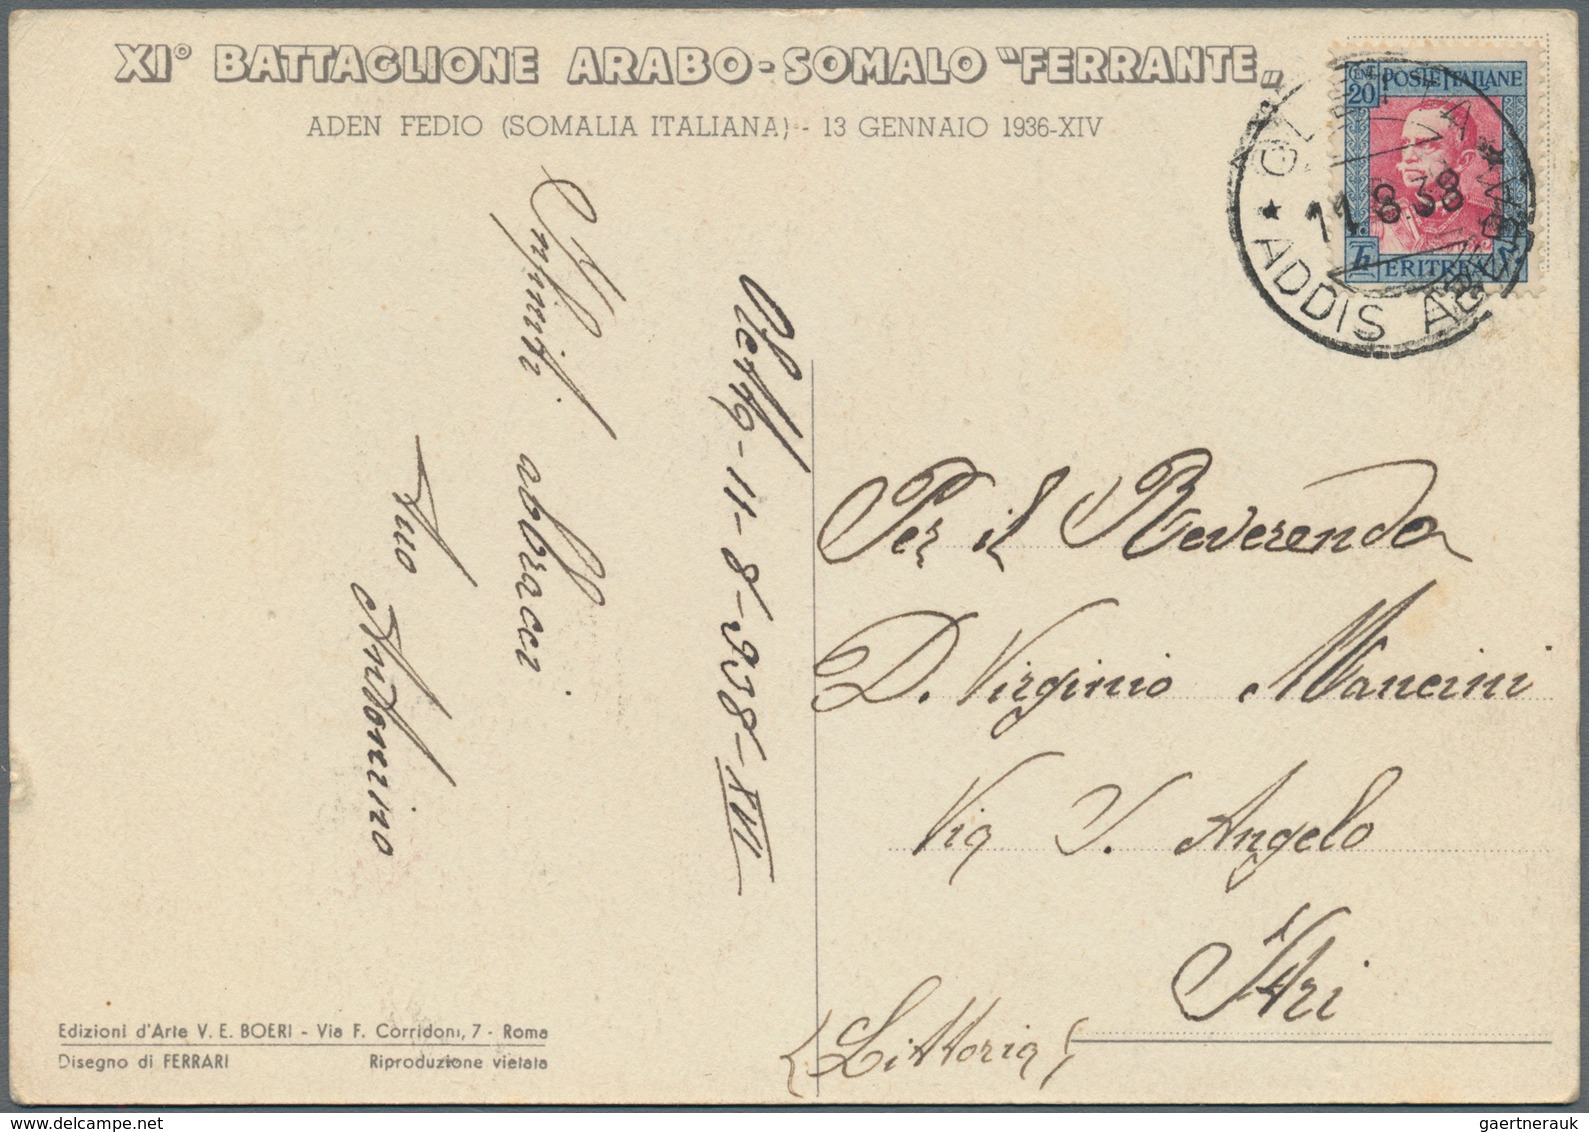 XI° BATTAGLIONE ARABO-SOMALO "FERRANTE"
ADEN FEDIO (SOMALIA ITALIANA) - 13 GENNAIO 1936-XIV
CENT. 20 POSTE ITALIANE
ERITREA
11.8.38
★ ADDIS ABEBA
Oletta-11-8-938-XVI
Infiniti
abbracci
tuo
Antonino
Per il Reverendo
D. Virginio Mancini
Via S. Angelo
Itri
(Littoria)
Edizioni d'Arte V. E. BOERI - Via F. Corridoni, 7 - Roma
Disegno di FERRARI Riproduzione vietata
gaertnerauk